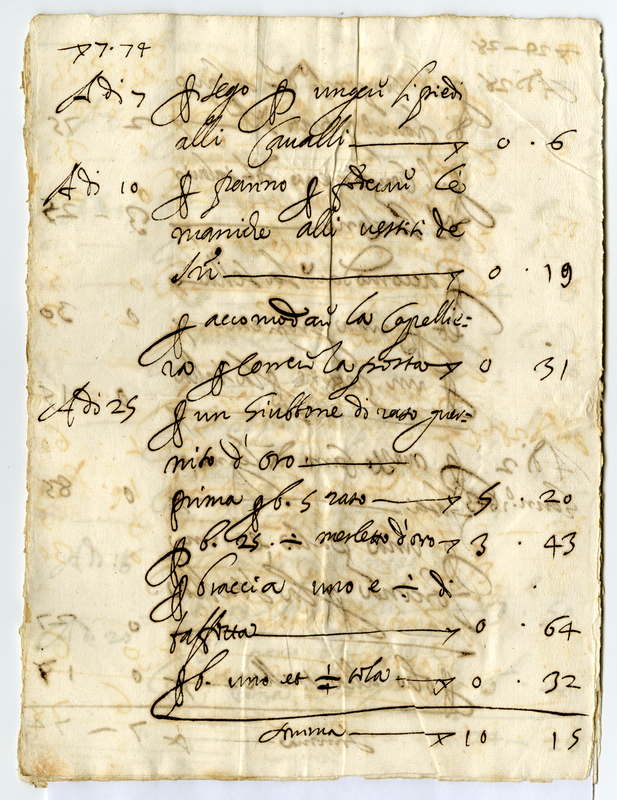 x 7 · 74
Adi 7 p sego p unger li piedi
alli Cavalli — x 0 · 6
Adi 10 p panno p foderar le
maniche alli vestiti de
— x 0 · 19
p accomodar la Capellie=
ra p la porta x 0 31
Adi 25 p un Giubbone di raso guer=
nito d'oro —
prima p b. 5 raso — x 5 · 20
p b. 25 · ÷ merletto d'oro x 3 · 43
p braccia uno e ÷ di
taffetta — x 0 · 64
p b. uno et ÷ tela — x 0 · 32
Somma — x 10 15